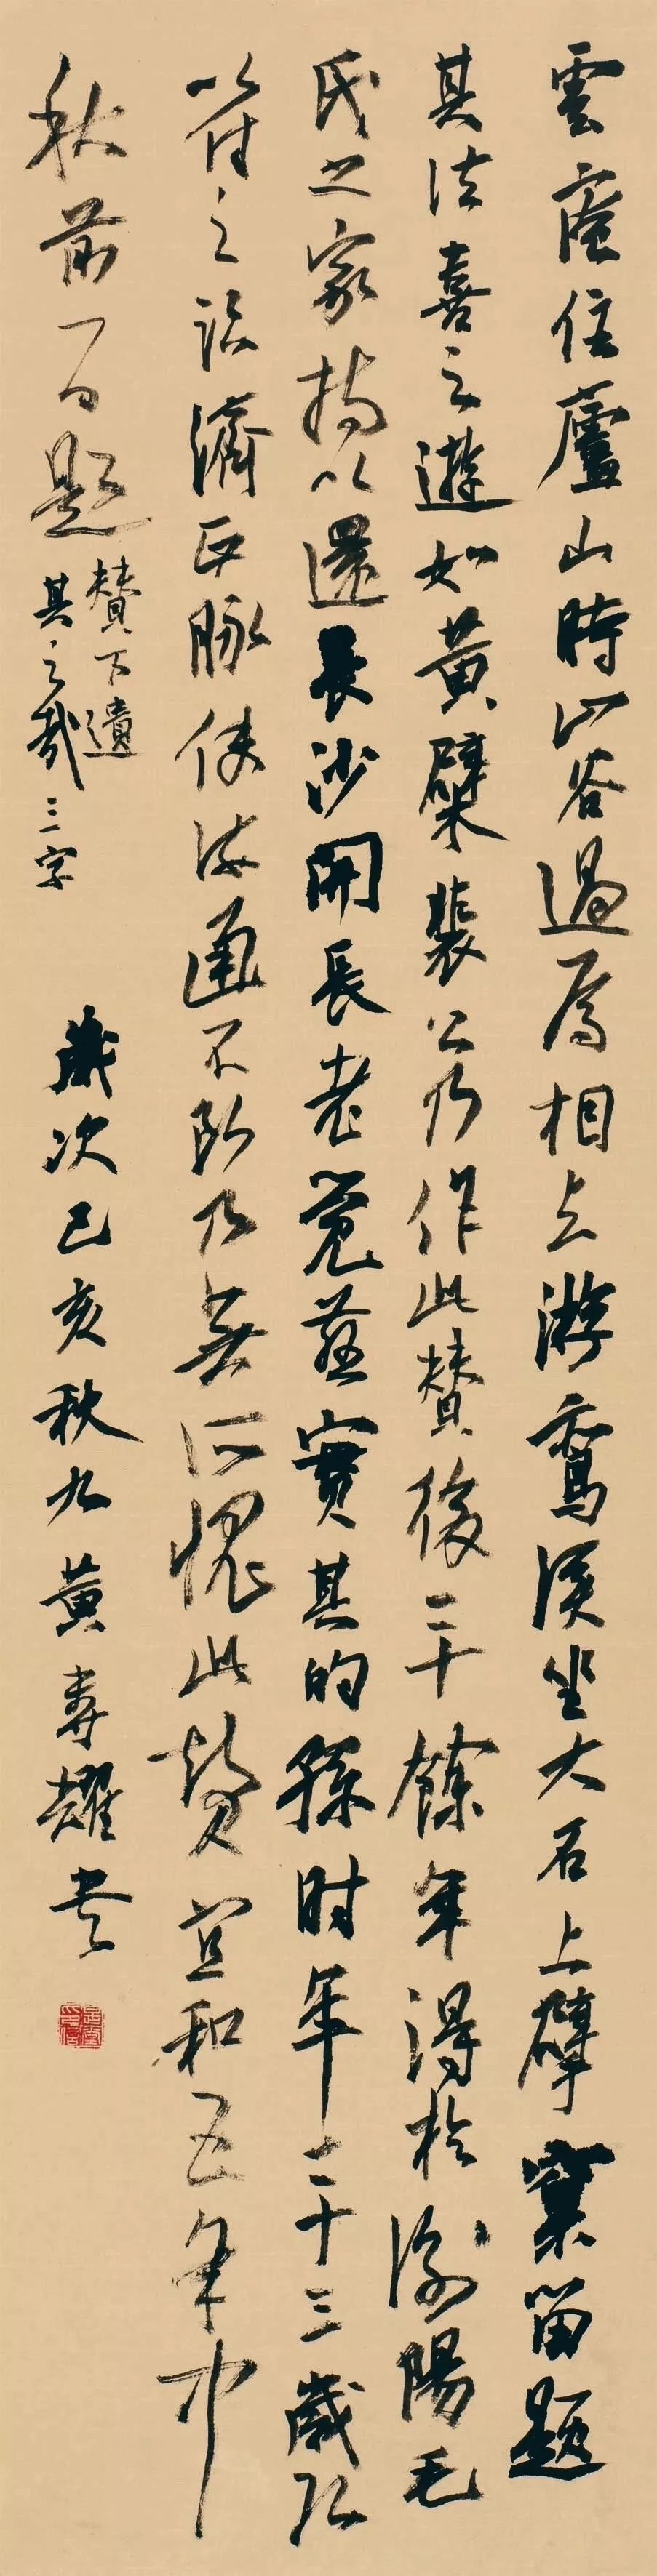 雲庵住廬山時山谷過焉相與游鸞溪坐大石上擘窠留題
其法喜之遊如黃檗裴公乃作此贊後三十餘年得於瀏陽毛
氏之家持以還長沙開長老覺慈實其的孫时年二十三歲能
以荷之臨濟正脉使流通不断乃無所愧此贊宣和五年中
秋前一日題
贊下遺
其之哉三字
歲次己亥秋九黃壽耀書